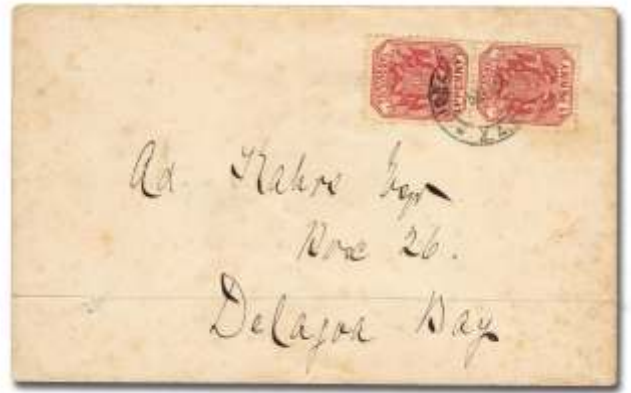 Ad. Kahre Esqr
Box 26.
Delagoa Bay